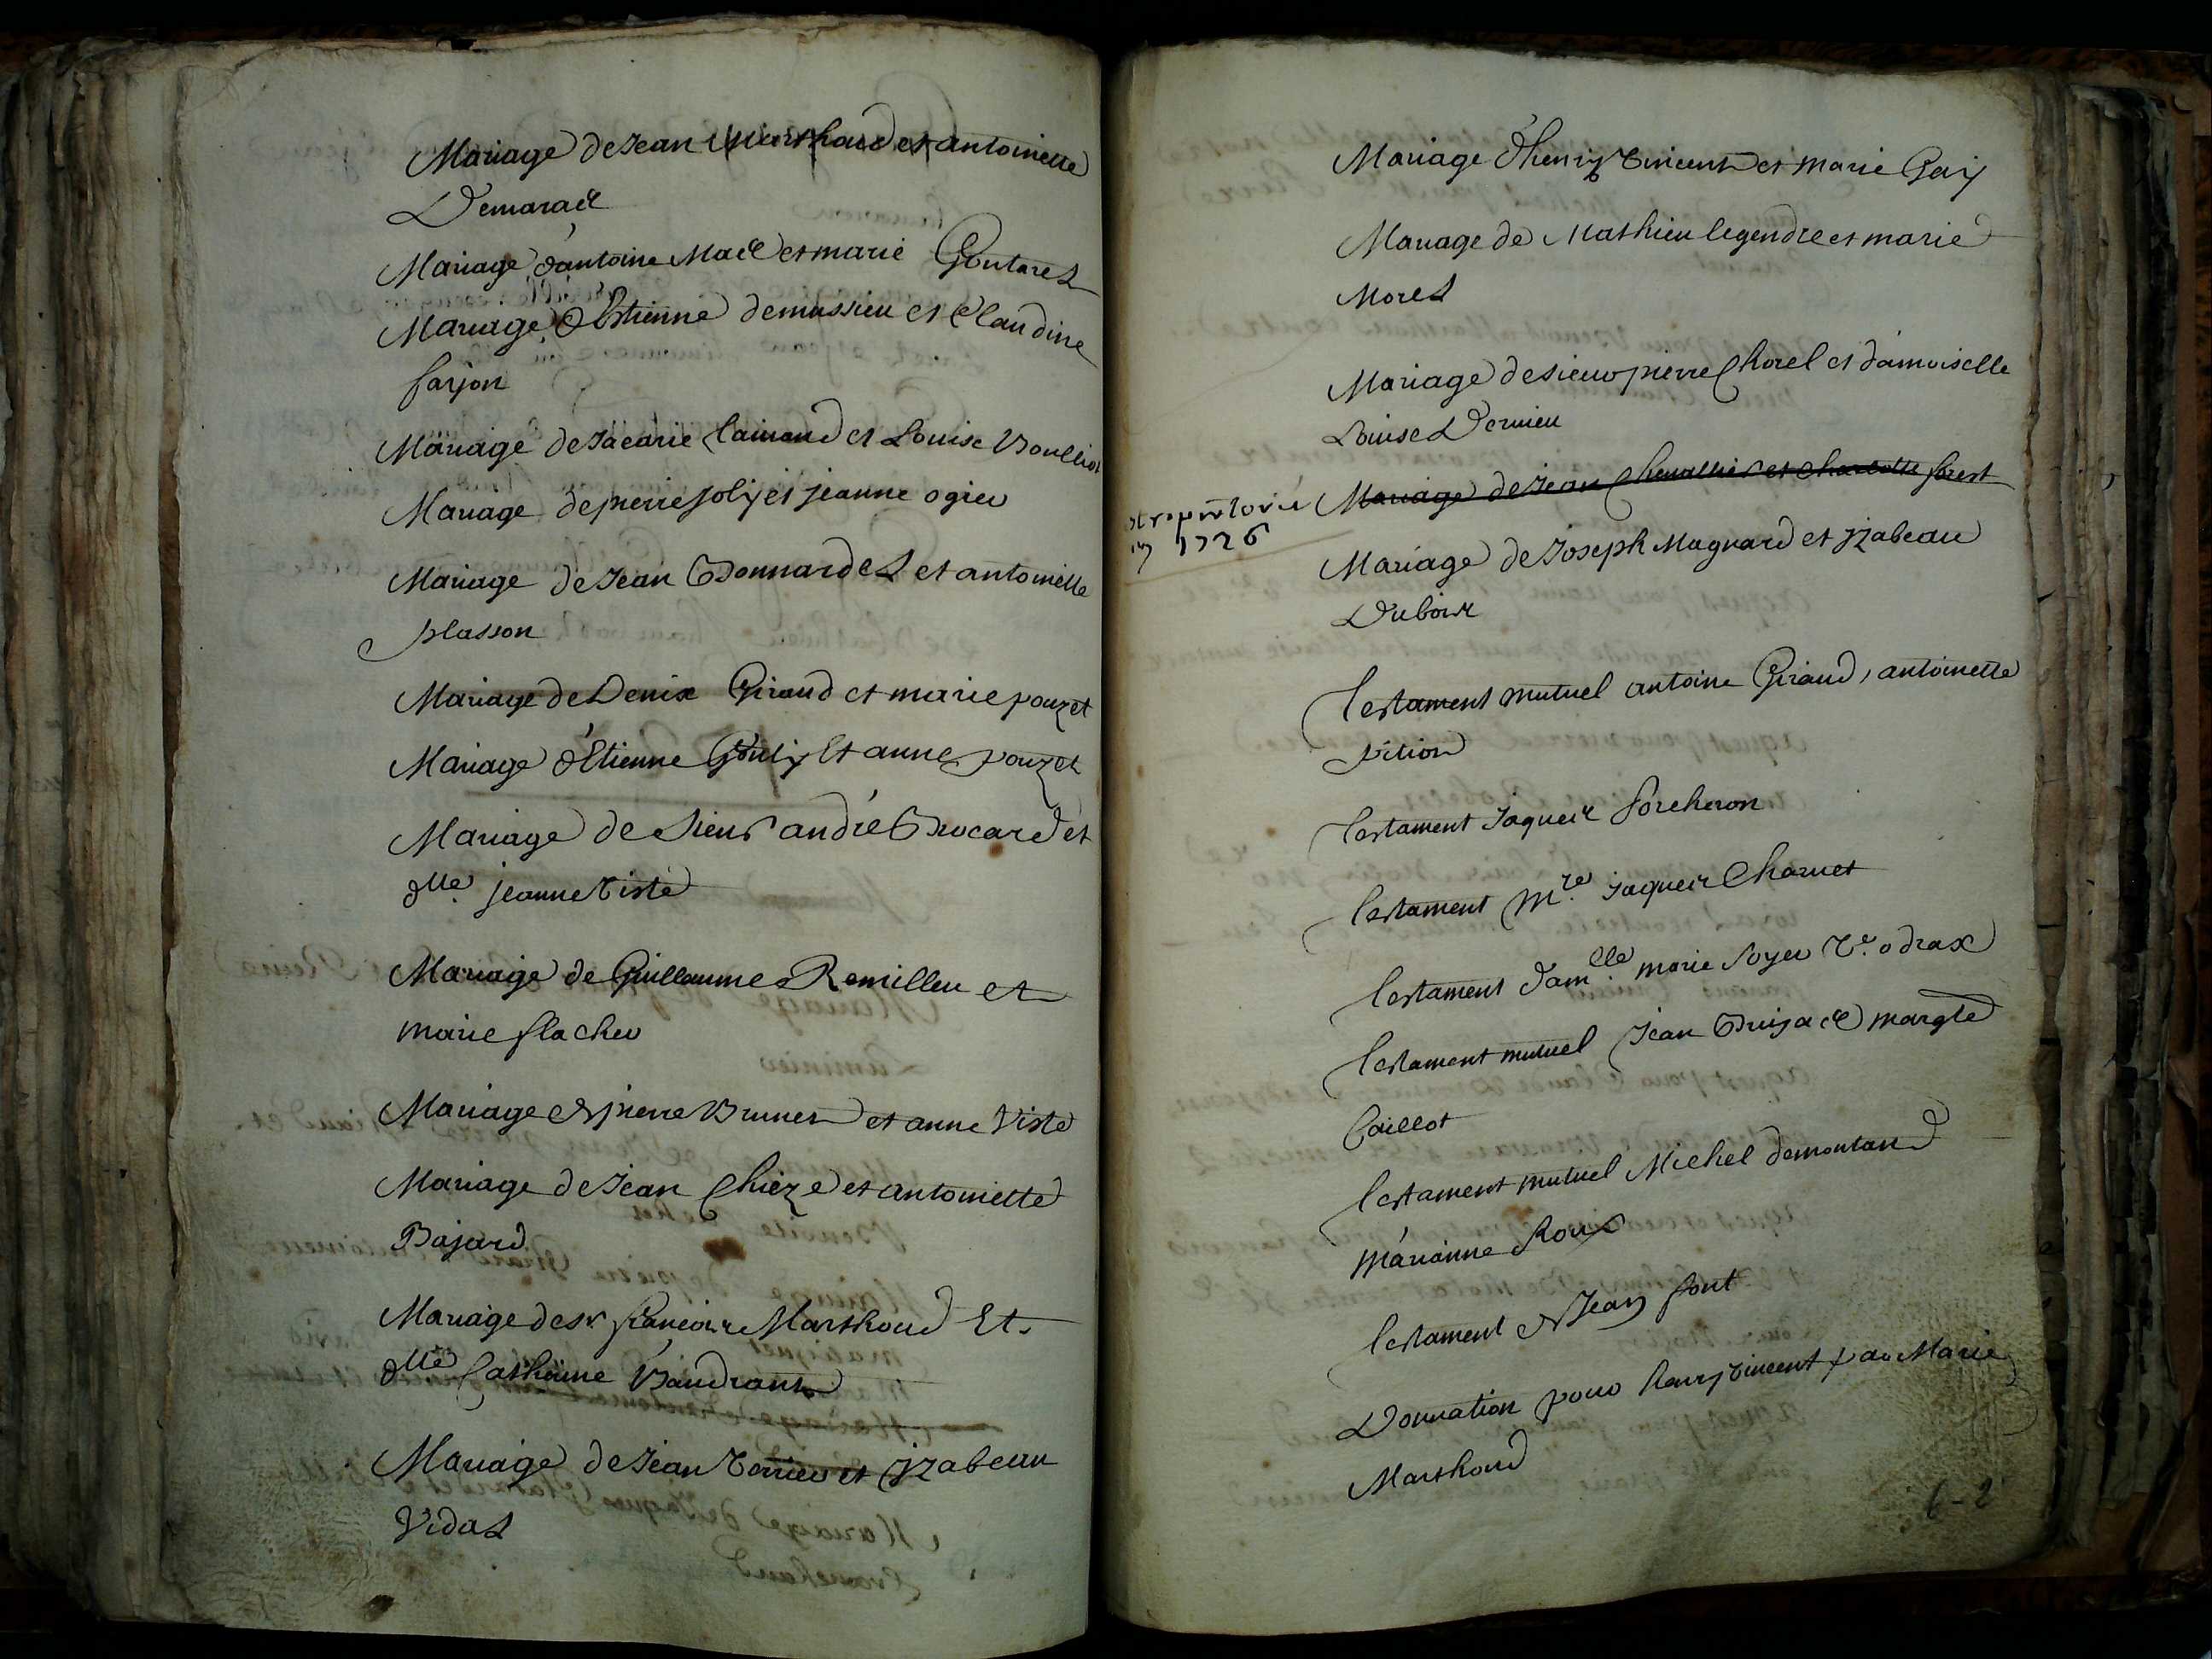 Mariage de Jean Marthoud et antoinette
Demarae
Mariage d'antoine Mace et marie Goutarel
Mariage d'Estienne demassieu et Claudine
farjon
Mariage de Jacarie Clainand et Louise Boullion
Mariage de pierre Joly et jeanne ogier
Mariage de Jean Bonnardel et antoinette
plasson
Mariage de Denix Giraud et marie pouzet
Mariage d'Etienne Gouly Et anne pouzet
Mariage de Sieur andré Brocard et
dlle jeanne Viste
Mariage de Guillaume Remilleu et
marie flacher
Mariage de pierre Brunet et anne Viste
Mariage de Jean Chieze et antoinette
Bajard
Mariage de sr francois Marthoud Et
dlle Catherine Baudrant
Mariage de Jean Terrier et jzabeau
Vidal
Mariage d'henry Vincent et marie Gay
Mariage de Mathieu legendre et marie
Morel
Mariage de sieur pierre Chorel et damoiselle
Louise Dernieu
Mariage de Jean Chevallier et Charlotte forest
1726
Mariage de Joseph Magnard et jzabeau
Duboix
Testament mutuel antoine Giraud, antoinette
pition
Testament Jaques forcheron
Testament Mre Jaques Charuet
Testament damelle marie Soyer Ve odrax
Testament mutuel Jean Brijac margte
Caillot
Testament mutuel Michel demontand
marianne Roux
Testament de Jean font
Donnation pour henry Vincent par Marie
Marthoud
6-2